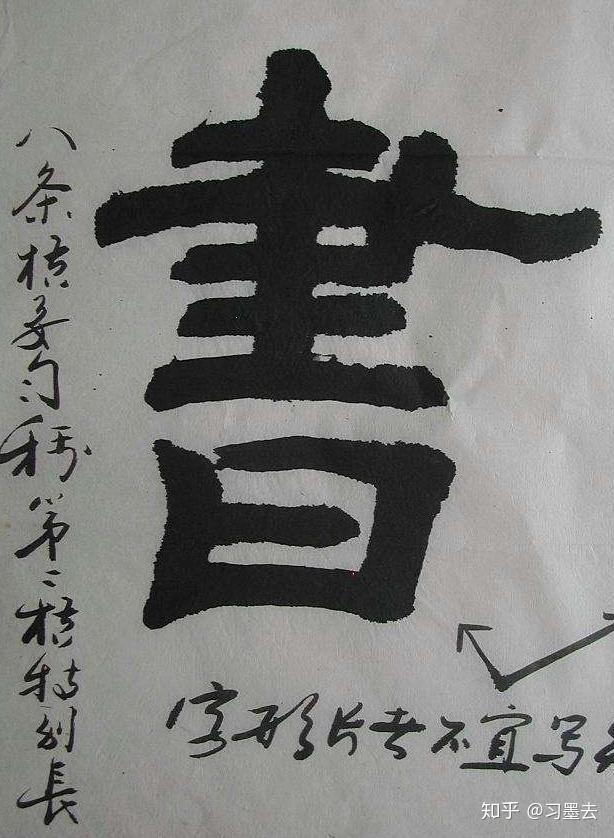 書
八条横要匀称第二横特别長
字形长者不宜写
知乎 @习墨去